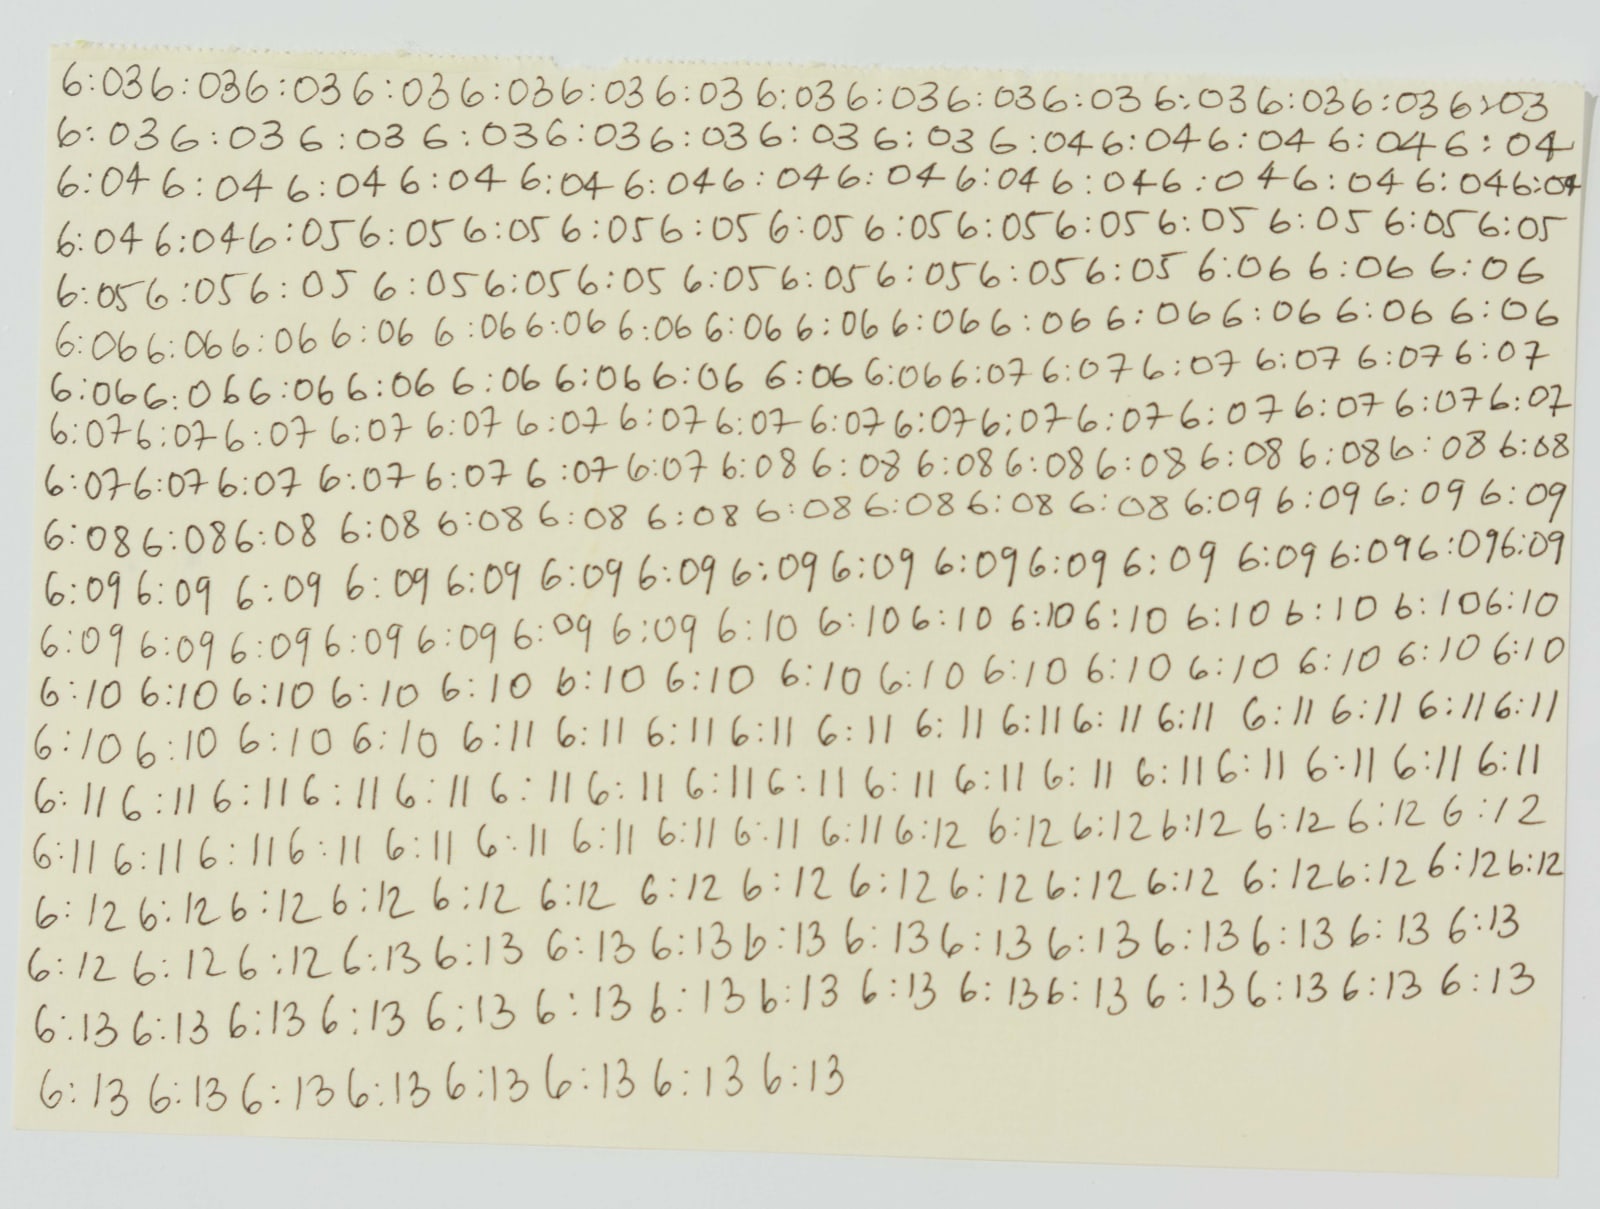 6:03 6:03 6:03 6:03 6:03 6:03 6:03 6:03 6:03 6:03 6:03 6:03 6:03 6:03 6:03
6:03 6:03 6:03 6:03 6:03 6:03 6:03 6:03 6:04 6:04 6:04 6:04 6:04
6:04 6:04 6:04 6:04 6:04 6:04 6:04 6:04 6:04 6:04 6:04 6:04 6:04 6:04
6:04 6:04 6:05 6:05 6:05 6:05 6:05 6:05 6:05 6:05 6:05 6:05 6:05 6:05 6:05
6:05 6:05 6:05 6:05 6:05 6:05 6:05 6:05 6:05 6:05 6:05 6:06 6:06 6:06
6:06 6:06 6:06 6:06 6:06 6:06 6:06 6:06 6:06 6:06 6:06 6:06 6:06 6:06 6:06
6:06 6:06 6:06 6:06 6:06 6:06 6:06 6:06 6:06 6:07 6:07 6:07 6:07 6:07 6:07
6:07 6:07 6:07 6:07 6:07 6:07 6:07 6:07 6:07 6:07 6:07 6:07 6:07 6:07 6:07 6:07
6:07 6:07 6:07 6:07 6:07 6:07 6:07 6:08 6:08 6:08 6:08 6:08 6:08 6:08 6:08 6:08
6:08 6:08 6:08 6:08 6:08 6:08 6:08 6:08 6:08 6:08 6:08 6:09 6:09 6:09 6:09
6:09 6:09 6:09 6:09 6:09 6:09 6:09 6:09 6:09 6:09 6:09 6:09 6:09 6:09 6:09 6:09
6:09 6:09 6:09 6:09 6:09 6:09 6:09 6:10 6:10 6:10 6:10 6:10 6:10 6:10 6:10 6:10
6:10 6:10 6:10 6:10 6:10 6:10 6:10 6:10 6:10 6:10 6:10 6:10 6:10 6:10 6:10
6:10 6:10 6:10 6:10 6:11 6:11 6:11 6:11 6:11 6:11 6:11 6:11 6:11 6:11 6:11 6:11 6:11
6:11 6:11 6:11 6:11 6:11 6:11 6:11 6:11 6:11 6:11 6:11 6:11 6:11 6:11 6:11 6:11 6:11
6:11 6:11 6:11 6:11 6:11 6:11 6:11 6:11 6:11 6:11 6:12 6:12 6:12 6:12 6:12 6:12 6:12
6:12 6:12 6:12 6:12 6:12 6:12 6:12 6:12 6:12 6:12 6:12 6:12 6:12 6:12 6:12 6:12
6:12 6:12 6:12 6:13 6:13 6:13 6:13 6:13 6:13 6:13 6:13 6:13 6:13 6:13 6:13
6:13 6:13 6:13 6:13 6:13 6:13 6:13 6:13 6:13 6:13 6:13 6:13 6:13 6:13 6:13
6:13 6:13 6:13 6:13 6:13 6:13 6:13 6:13